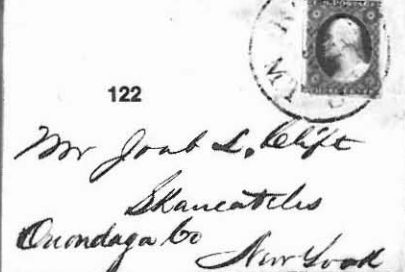 U.S. POSTAGE
122
Mr Joab L. Clift
Skaneateles
Onondaga Co
New York